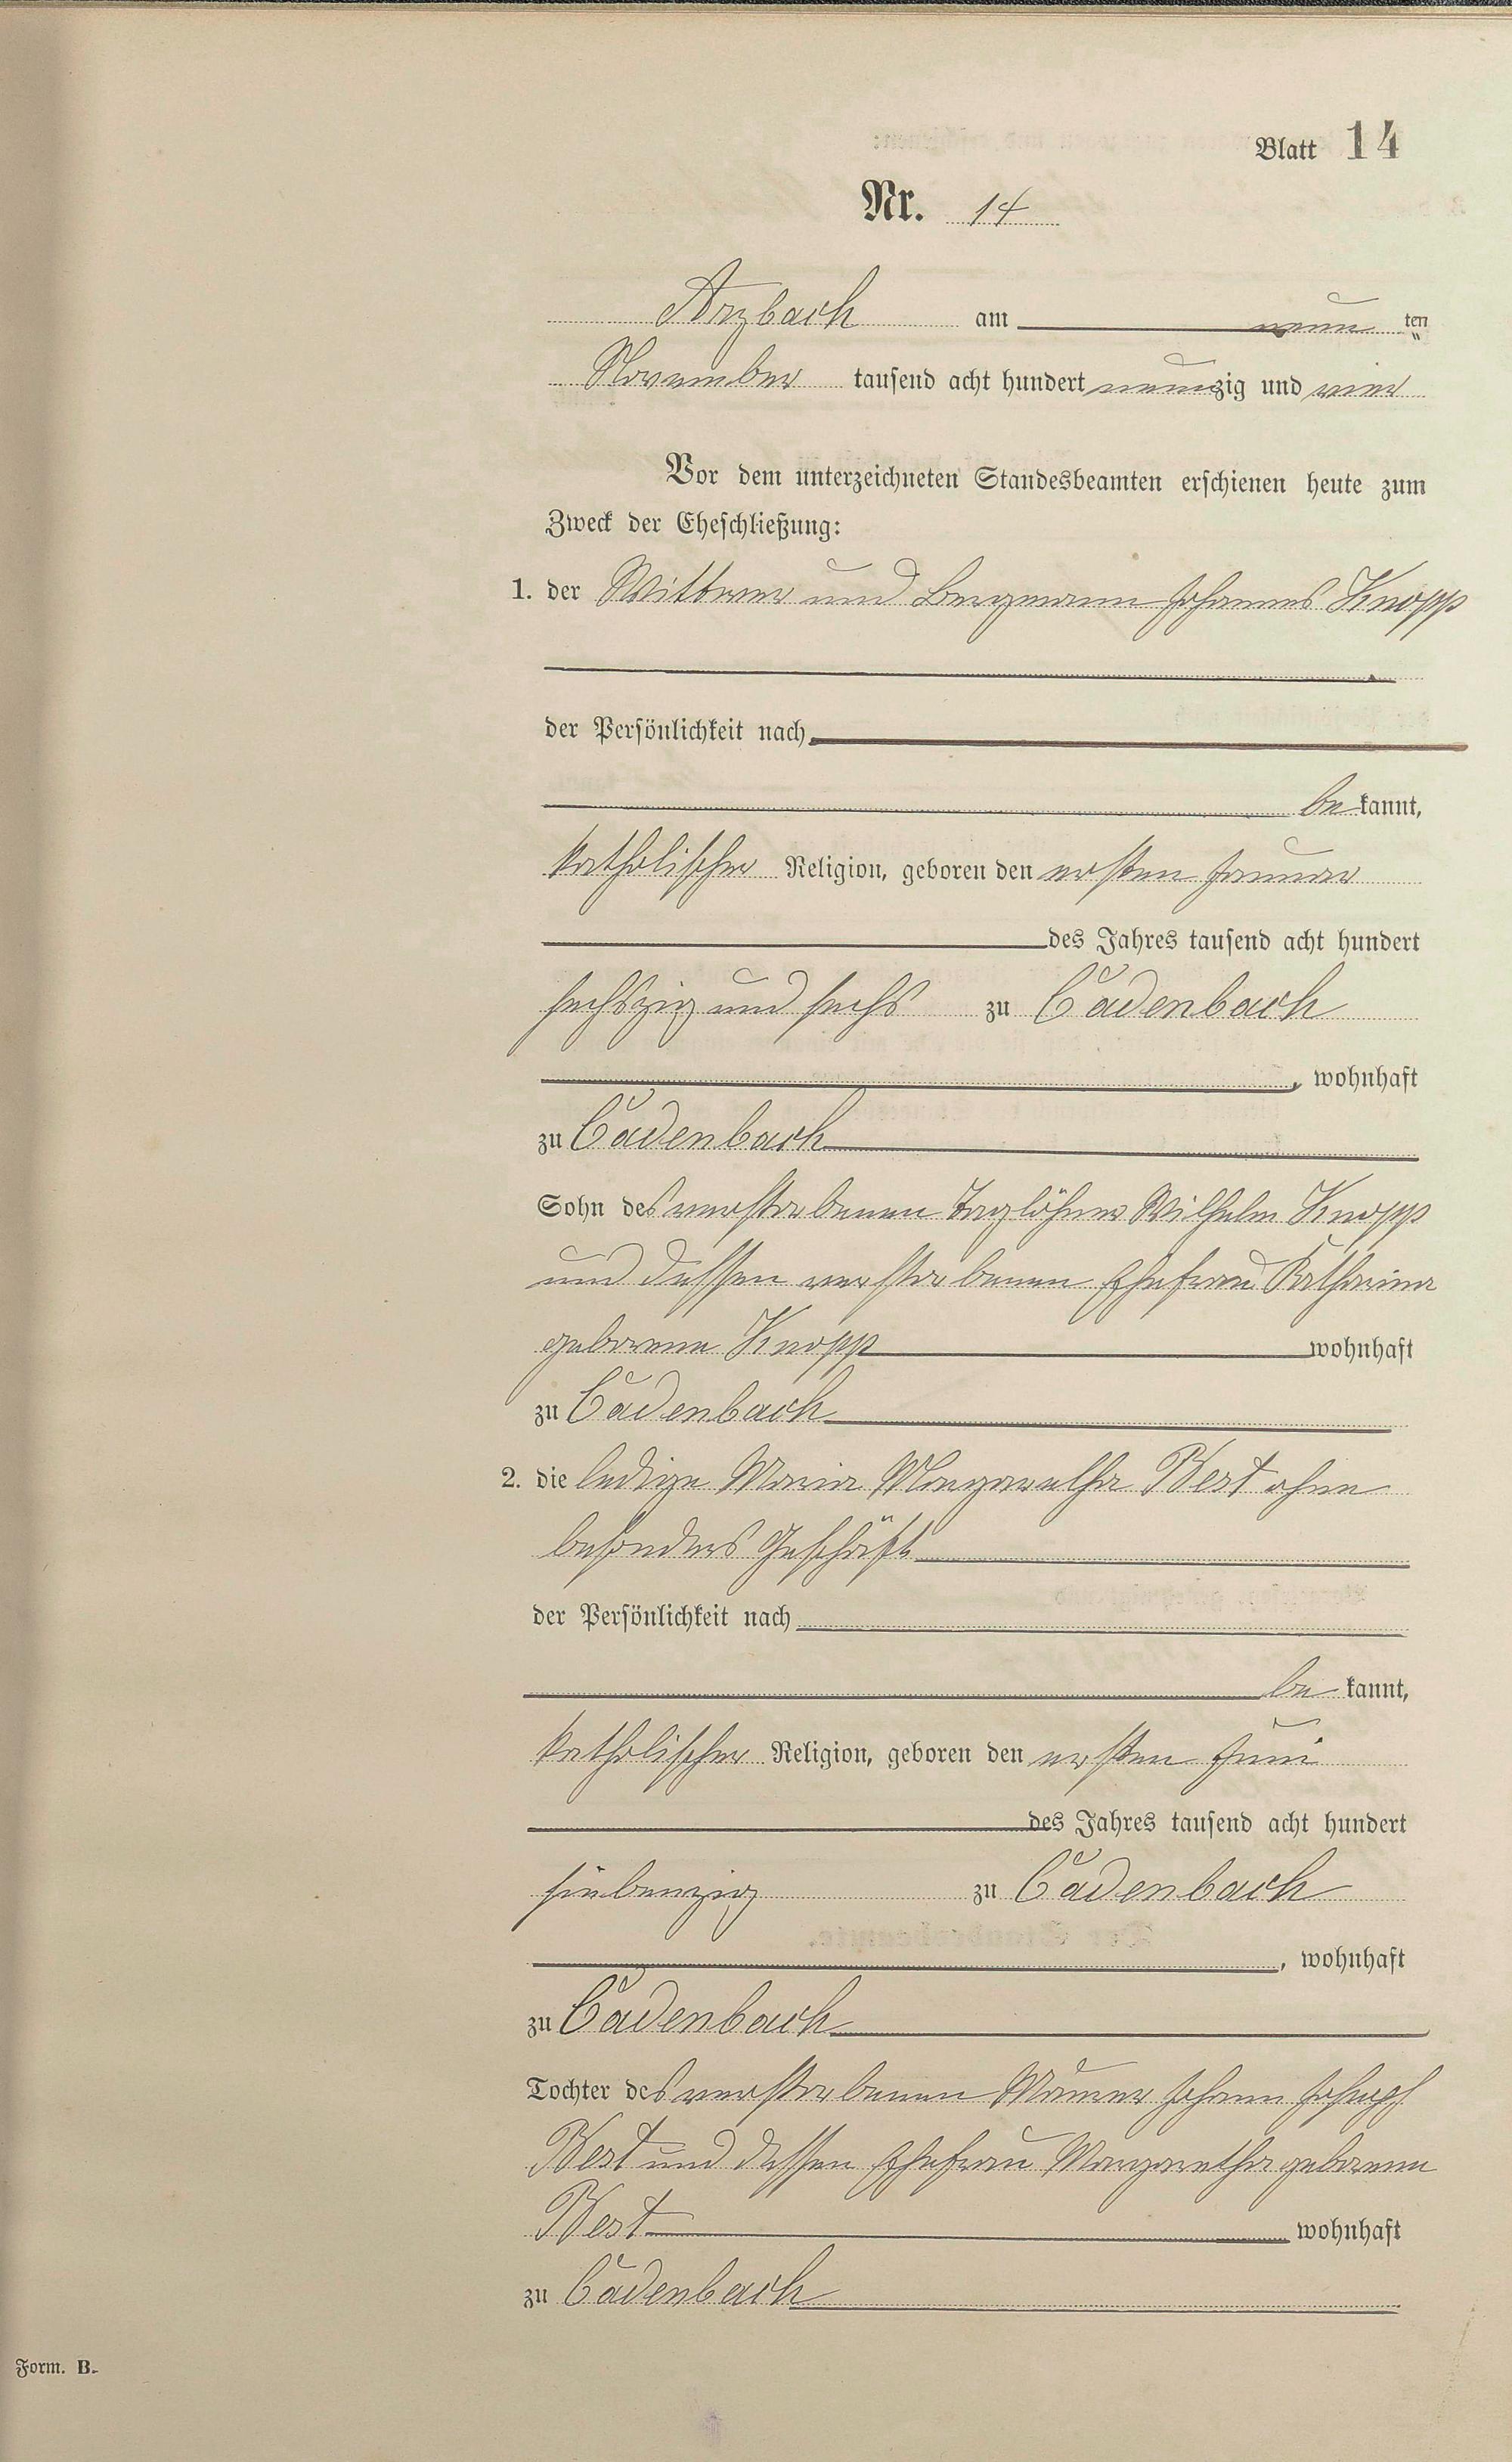 Blatt 14
Nr. 14
Arzbach am neun ten
November tausend acht hundert neunzig und vier
Vor dem unterzeichneten Standesbeamten erschienen heute zum
Zweck der Eheschließung:
1. der Wittwer und Bergmann Johannes Knopp
der Persönlichkeit nach
be kannt,
katholischer Religion, geboren den ersten Januar
des Jahres tausend acht hundert
sechszig und sechs zu Cadenbach
, wohnhaft
zu Cadenbach
Sohn des verstorbenen Taglöhner Wilhelm Knopp
und dessen verstorbenen Ehefrau Katharina
geborene Knopp wohnhaft
zu Cadenbach
2. die ledige Maria Margaretha Best ohne
besonders Geschäft
der Persönlichkeit nach
be kannt,
katholischer Religion, geboren den ersten Juni
des Jahres tausend acht hundert
siebenzig zu Cadenbach
, wohnhaft
zu Cadenbach
Tochter des verstorbenen Maurer Johann Joseph
Best und dessen Ehefrau Margaretha geborene
Best wohnhaft
zu Cadenbach
Form. B.